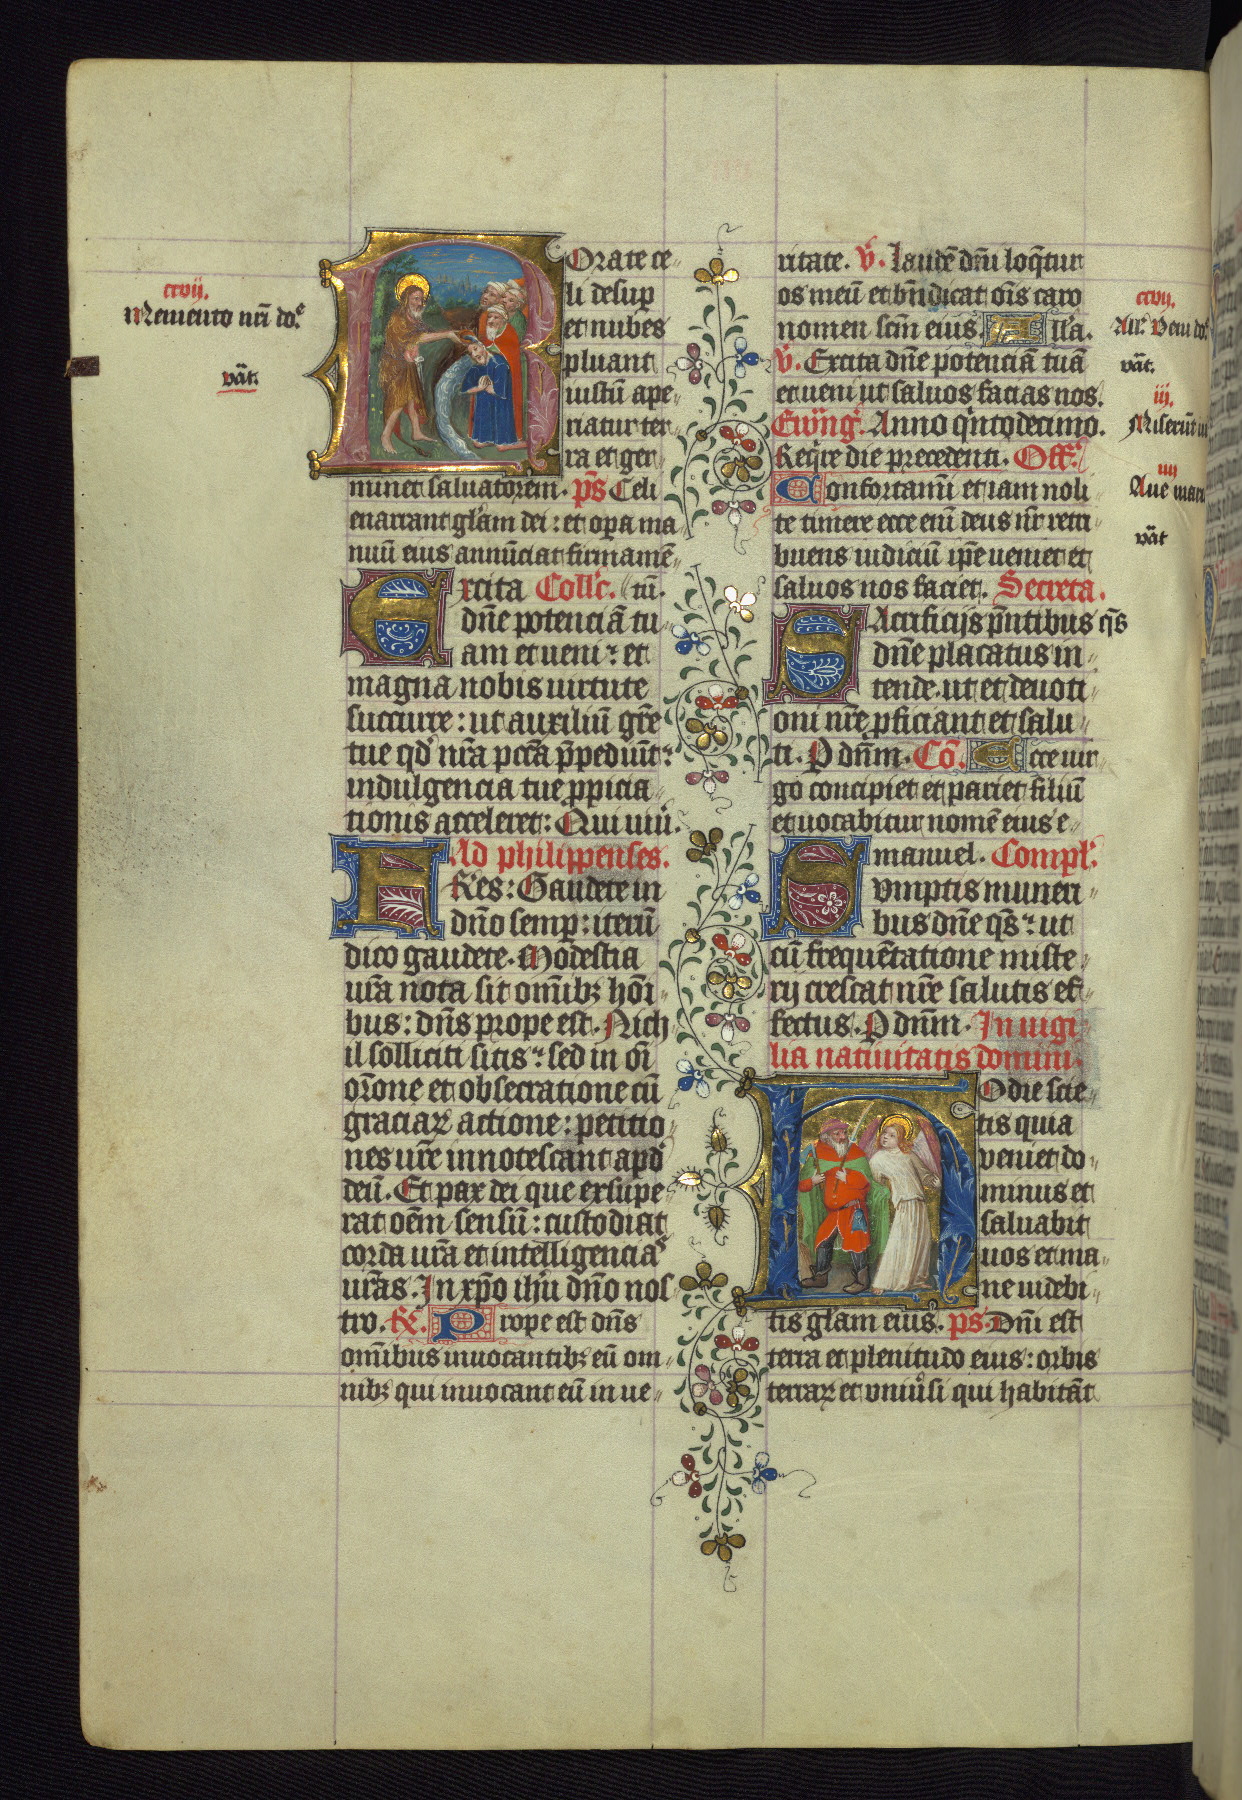 ccvii.
Memento nr̄i do.ͤ
vāt.
Orate ce-
li desup
et nubes
pluant
iustū ape-
riatur ter-
ra et ger-
minet saluatorem. p̄s Celi
enarrant gl̄am dei : et oꝑa ma-
nuū eius annūciat firmamē-
Excita Coll̄c. nī.
dn̄e potenciā tu-
am et veni : et
magna nobis uirtute
succurre : ut auxiliū gr̄e
tue qd̓ nr̄a pcc̄a p̄pediūt :
indulgencia tue ꝓpicia-
tionis acceleret : Qui viu̅.
Ad philippenses.
FR̄es : Gaudete in
dn̄o semꝑ : iterū
dico gaudete. Modestia
vr̄a nota sit om̄ibꝫ hōi-
bus : dn̄s prope est. Nich-
il solliciti sitis : sed in oī
or̄one et obsecratione cū
graciaꝝ actione : petitio-
nes vr̄e innotescant apd̓
deū. Et pax dei que exsupe-
rat oēm sensū : custodiat
corda vr̄a et intelligencias
vr̄as. In xp̄o ih̄u dn̄o nos-
tro. R̄. Prope est dn̄s
om̄ibus inuocantibꝫ eū om-
nibꝫ qui inuocant eū in ue-
ritate. v̄. Laudē dn̄i loq̄tur
os meū et bn̄dicat oīs caro
nomen sc̄m eius. All̄a.
v̄. Excita dn̄e potenciā tuā
et ueni ut saluos facias nos.
Ewn̄g. Anno qͥntodecimo.
Reqͥre die precedenti. Off̄.
Confortamī et iam noli-
te timere ecce enī deus nr̄ retri-
buens iudiciū ip̄e ueniet et
saluos nos faciet. Secreta.
SAcrificijs pn̄tibus qs̄
dn̄e placatus in-
tende. ut et deuoti-
oni nr̄e ꝓficiant et salu-
ti. P dn̄m. Cō. Ecce uir-
go concipiet et pariet filiū
et uocabitur nomē eius e-
manuel. Compl̄.
Sumptis muneri-
bus dn̄e qs̄ : ut
cū frequētatione miste-
rij crescat nr̄e salutis ef-
fectus. P dn̄m. In uigi-
lia natiuitatis domini.
HOdie scie-
tis quia
veniet do-
minus et
saluabit
uos et ma-
ne uidebi-
tis gl̄am eius. ps. Dn̄i est
terra et plenitudo eius : orbis
terraꝝ et vniuͬsi qui habitāt
ccvii.
All̄. Veni do.ͤ
vāt.
iii.
Miserūt iu
iiii
Aue mari
vāt